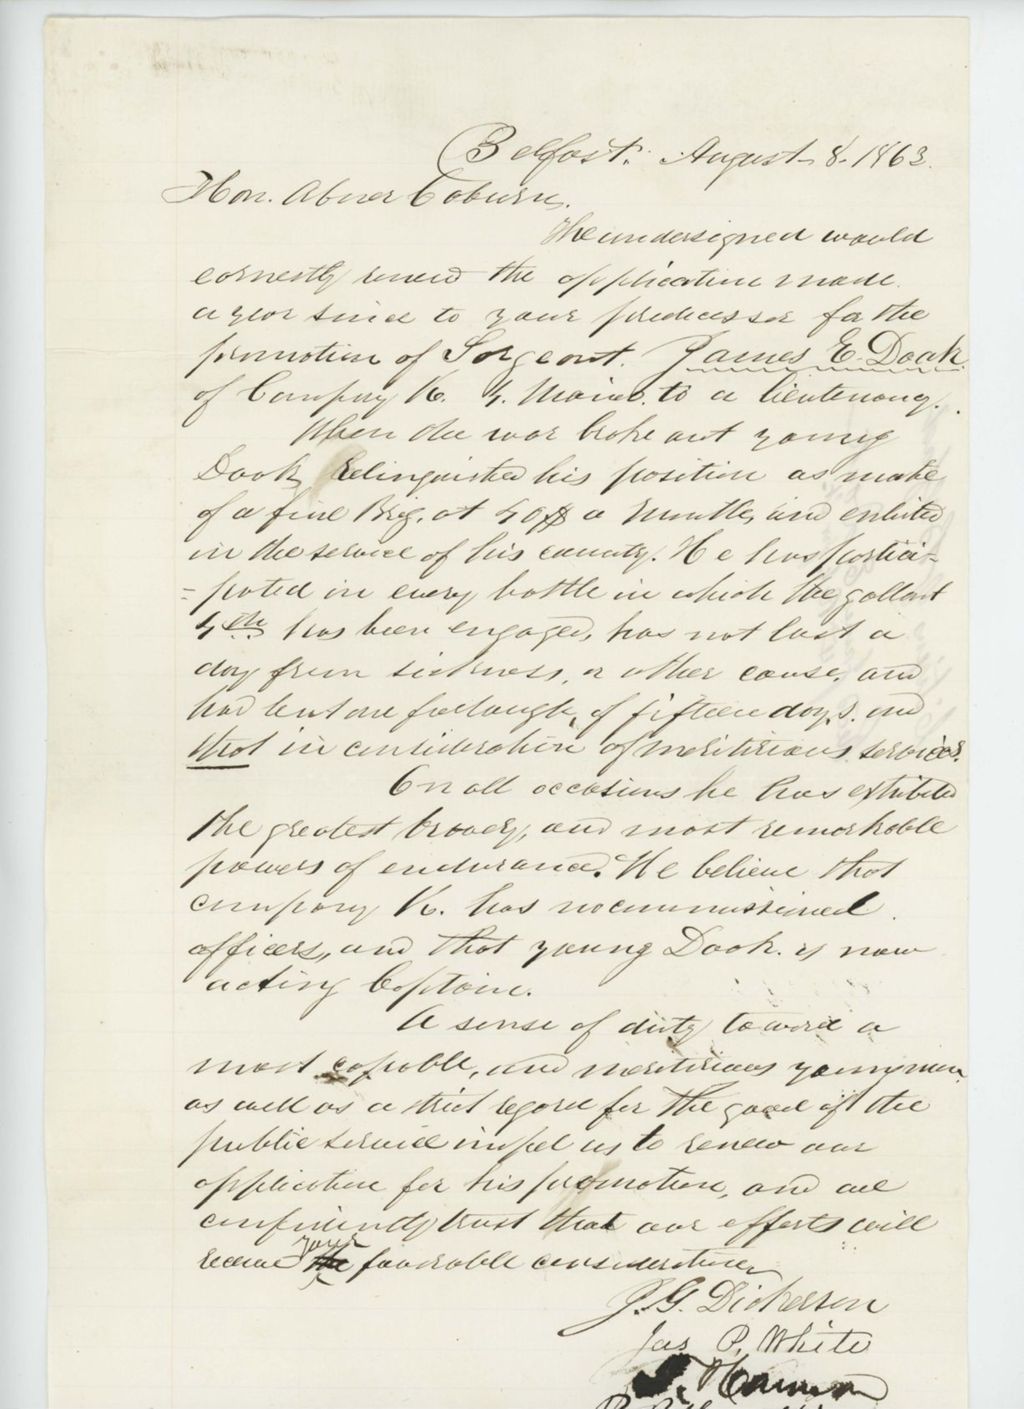 Belfast. August 8. 1863.
Hon. Abner Coburn.
The undersigned would
earnestly renew the application made
a year since to your predecessor for the
promotion of Sergeant. James E. Doak
of Company K. 4. Maine. to a lieutenancy.
When the war broke out young
Doak relinquished his position as mate
of a fine Brig. at 40$ a month, and enlisted
in the service of his country. He has partici-
=pated in every battle in which the gallant
4th has been engaged, has not lost a
day from sickness, or other cause, and
had but one furlough, of fifteen days. and
that in consideration of meritorious services.
On all occasions he has exhibited
the greatest bravery, and most remarkable
powers of endurance. We believe that
company K. has no commissioned
officers, and that young Doak. is now
acting Captain.
A sense of duty toward a
most capable, and meritorious young man,
as well as a strict regard for the good of the
public service impel us to renew our
application for his promotion, and we
confidently trust that our efforts will
receive your the favorable consideration
J. G. Dickerson
Jas P. White